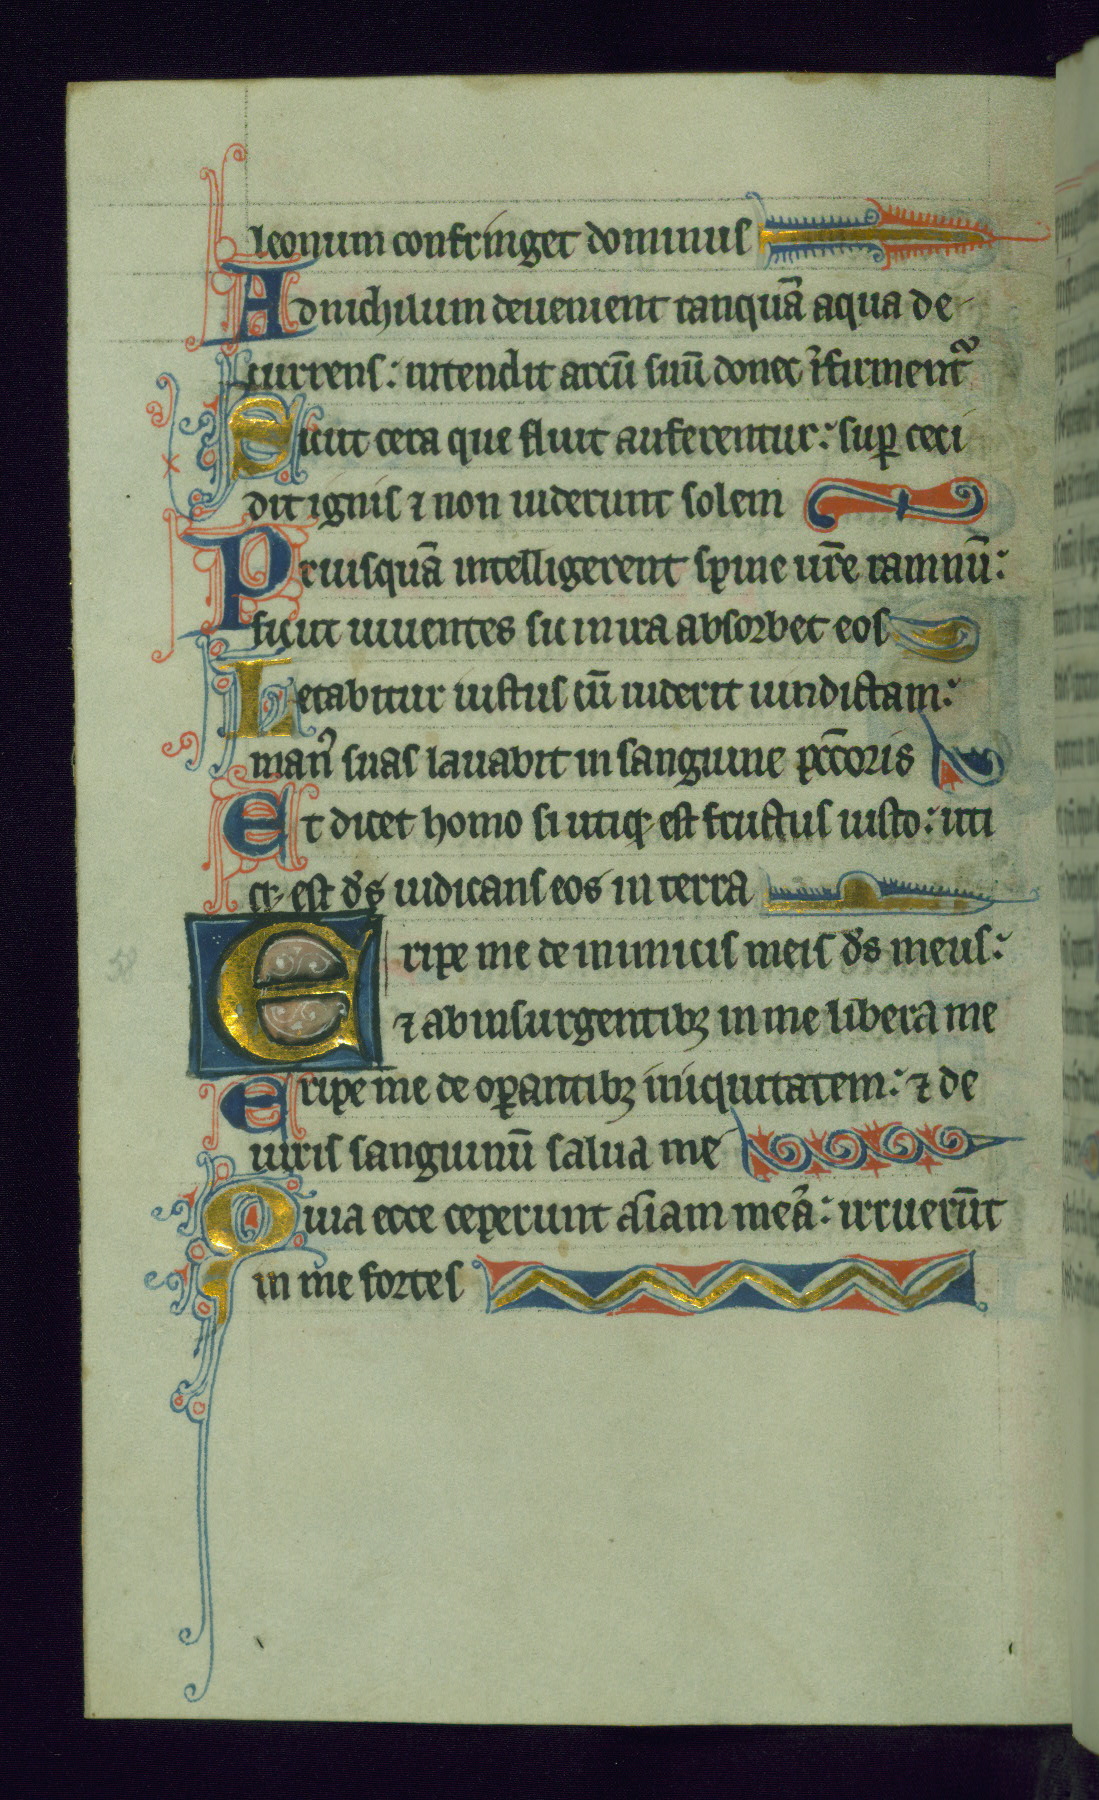 leonum confringet dominus
Ad nichilum deuenient tanquā aqua de
currens: intendit arcū suū donec īfirment᷑
Sicut cera que fluit auferentur: suꝑ ceci
dit ignis ⁊ non uiderunt solem
Priusquā intelligerent spine ur̄e ramnū:
sicut uiuentes sic in ira absorbet eos
Letabitur iustus cū uiderit uindictam:
man᷒ suas lauabit in sanguine pc̄c̄oris
Et dicet homo si utiqꝫ est fructus iusto: uti
qꝫ est d̄s iudicans eos in terra
Eripe me de inimicis meis d̄s meus:
58
⁊ ab insurgentibꝫ in me libera me
Eripe me de oꝑantibꝫ iniquitatem: ⁊ de
uiris sanguinū salua me
Quia ecce ceperunt aīam meā: irruerūt
in me fortes